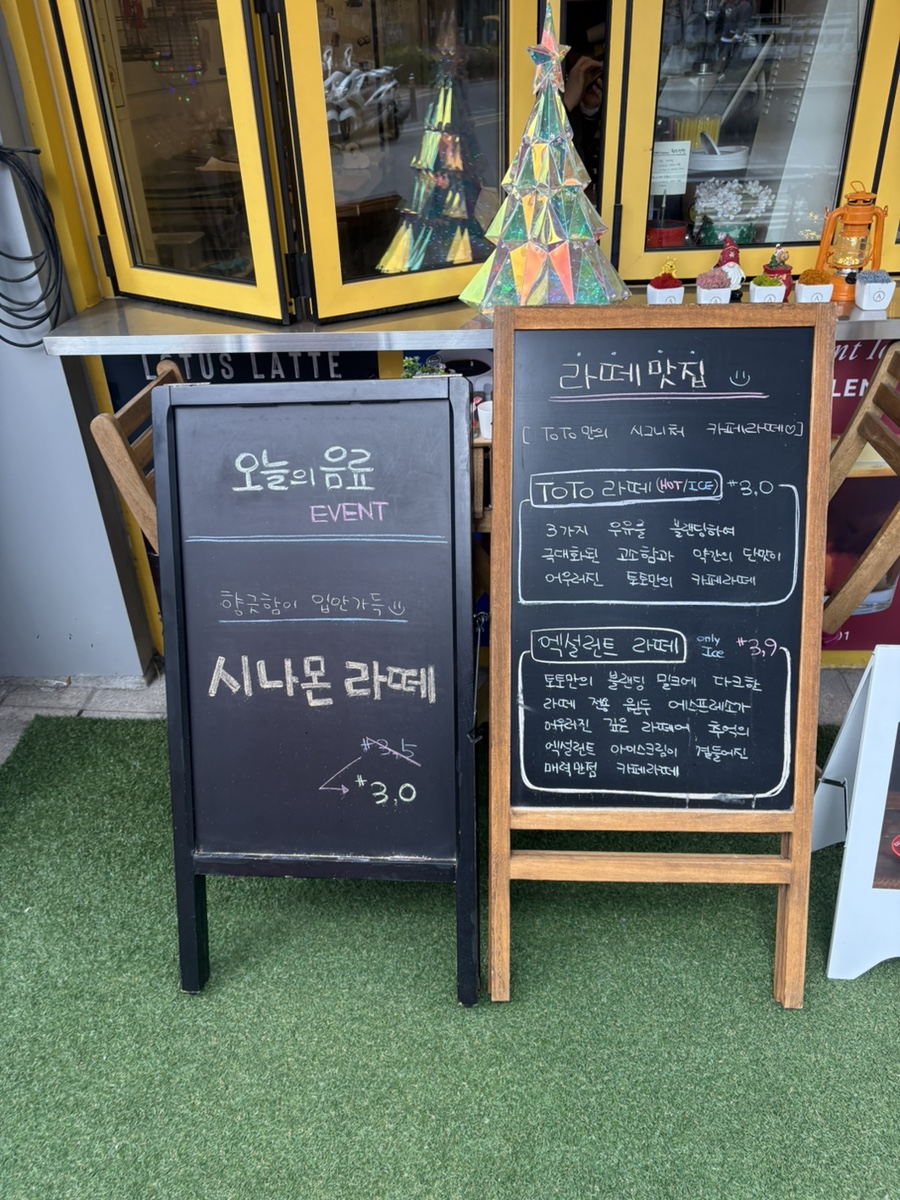 LOTUS LATTE
오늘의 음료
EVENT
향긋함이 입안가득
시나몬 라떼
₩3,5
₩3,0
라떼맛집
[ ToTo만의 시그니처 카페라떼♡]
ToTo 라떼(HOT/ICE) ₩3,0
3가지 우유를 블랜딩하여
극대화된 고소함과 약간의 단맛이
어우러진 토토만의 카페라떼
엑설런트 라떼 only Ice ₩3,9
토토만의 블랜딩 밀크에 다크한
라떼 전용 원두 에스프레소가
어우러진 깊은 라떼에 추억의
엑설런트 아이스크림이 곁들어진
매력만점 카페라떼